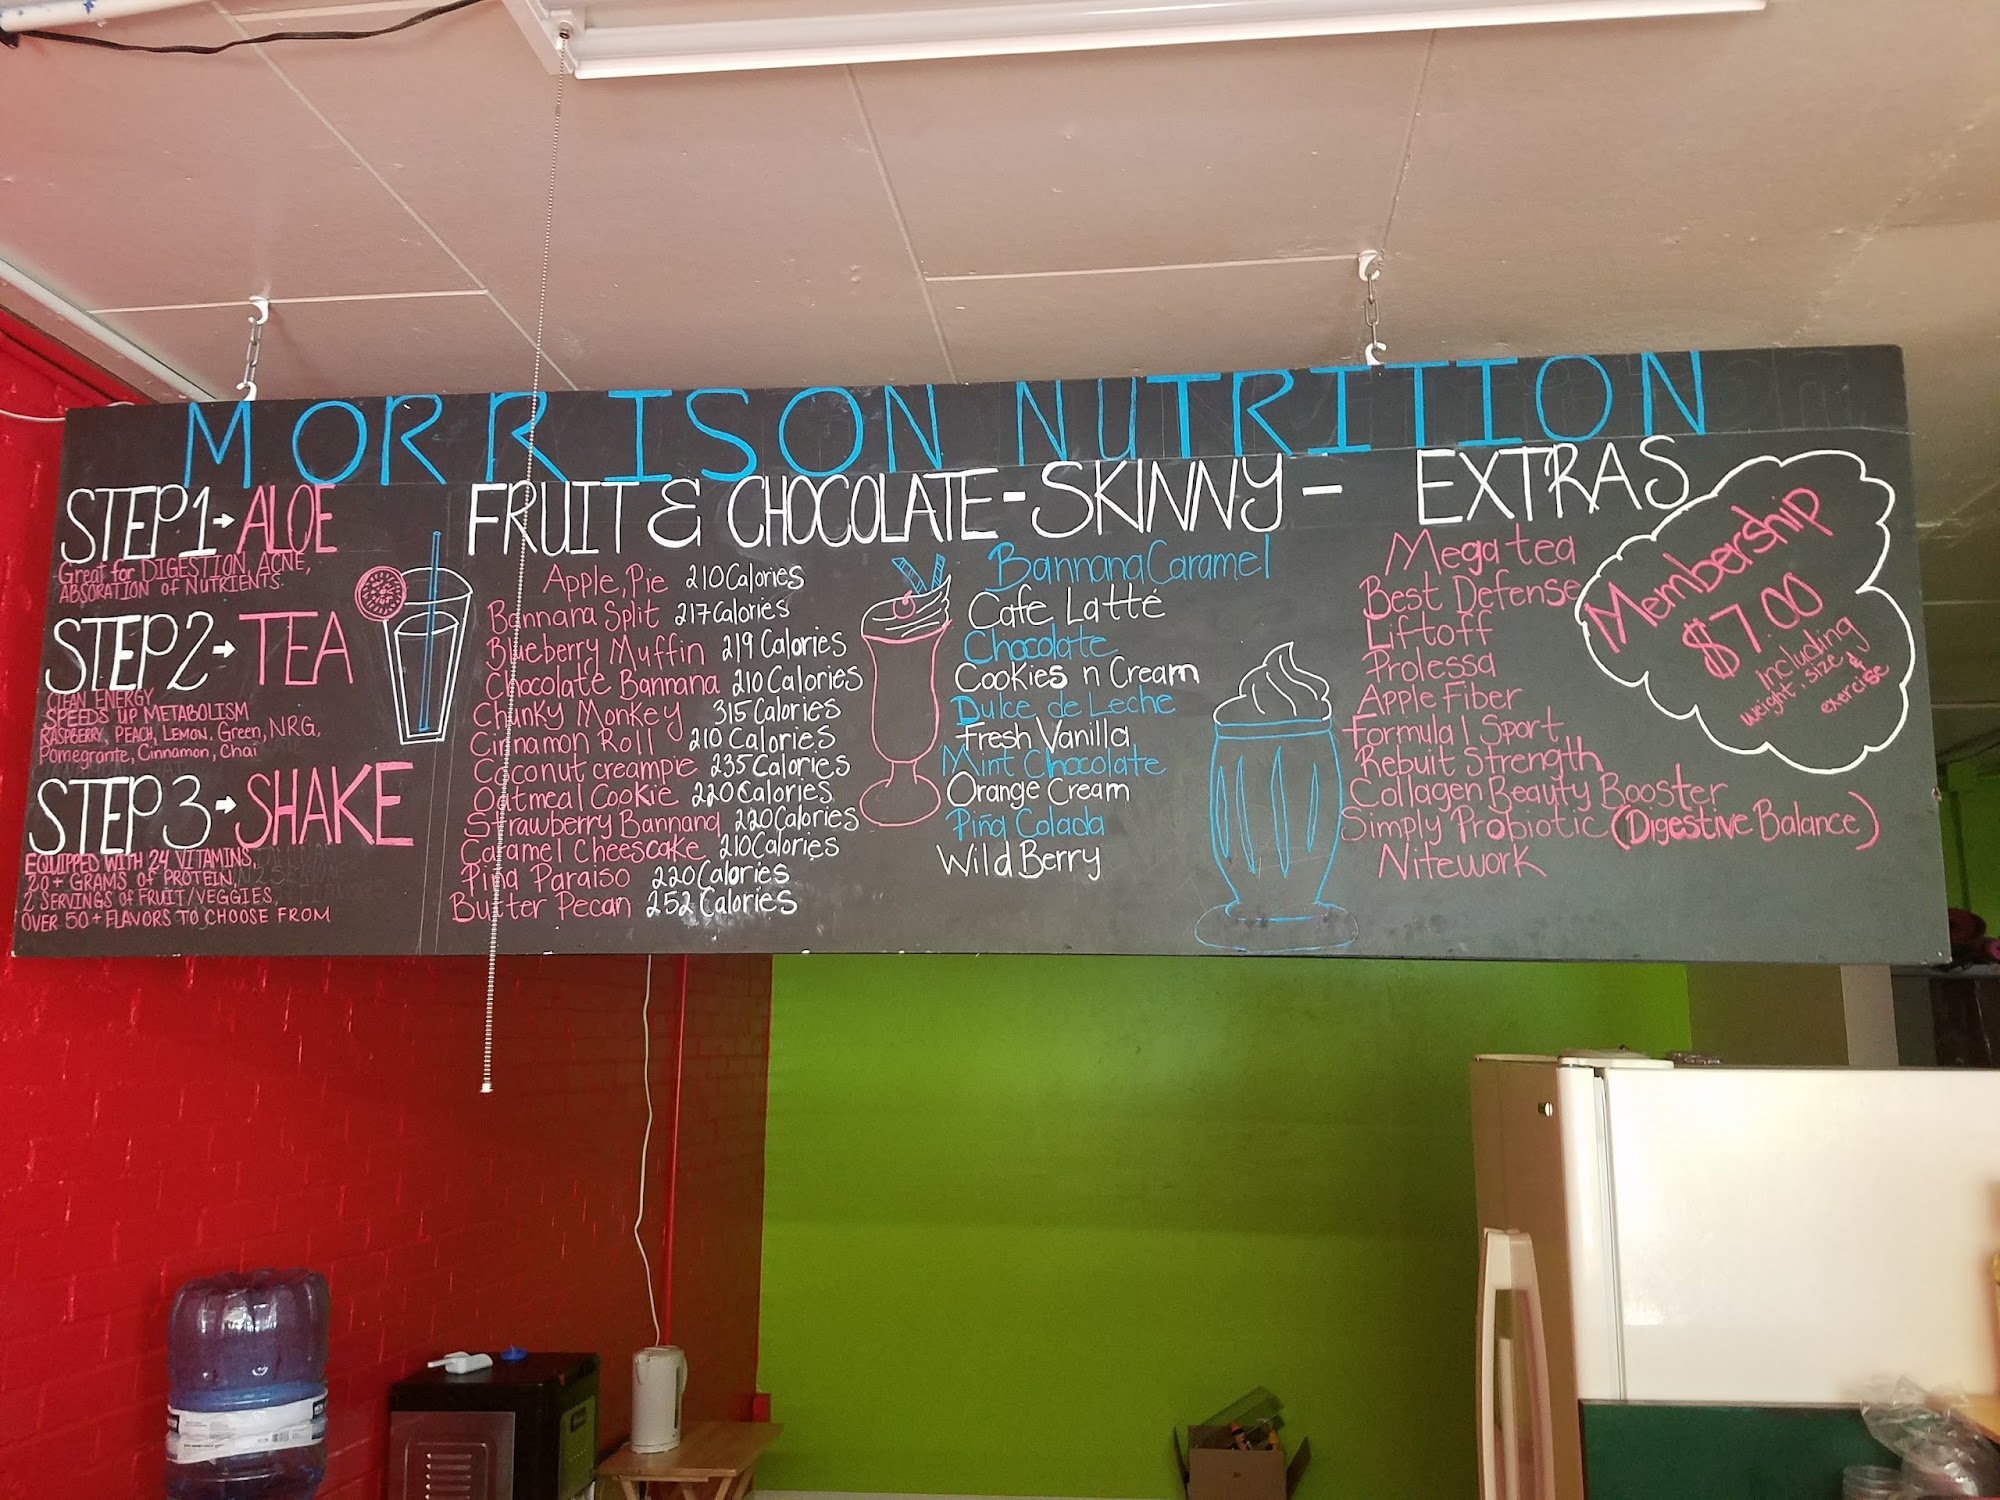 MORRISON NUTRITION
STEP 1 → ALOE
Great for DIGESTION, ACNE,
ABSORATION of NUTRIENTS.
STEP 2 → TEA
CLEAN ENERGY
SPEEDS UP METABOLISM
RASPBERRY, PEACH, LEMON, Green, NRG,
Pomegrante, Cinnamon, Chai
STEP 3 → SHAKE
EQUIPPED WITH 24 VITAMINS,
20+ GRAMS OF PROTEIN,
2 SERVINGS OF FRUIT/VEGGIES,
OVER 50+ FLAVORS TO CHOOSE FROM
FRUIT & CHOCOLATE - SKINNY -
Apple Pie 210 Calories
Bannana Split 217 Calories
Blueberry Muffin 219 Calories
Chocolate Bannana 210 Calories
Chunky Monkey 315 Calories
Cinnamon Roll 210 Calories
Coconut creampie 235 Calories
Oatmeal Cookie 220 Calories
Strawberry Bannana 220 Calories
Caramel Cheescake 210 Calories
Piña Paraiso 220 Calories
Butter Pecan 252 Calories
Bannana Caramel
Cafe Latte
Chocolate
Cookies n Cream
Dulce de Leche
Fresh Vanilla
Mint Chocolate
Orange Cream
Piña Colada
Wild Berry
EXTRAS
Mega tea
Best Defense
Liftoff
Prolessa
Apple Fiber
Formula 1 Sport
Rebuit Strength
Collagen Beauty Booster
Simply Probiotic (Digestive Balance)
Nitework
Membership
$7.00
including
weight, size &
exercise